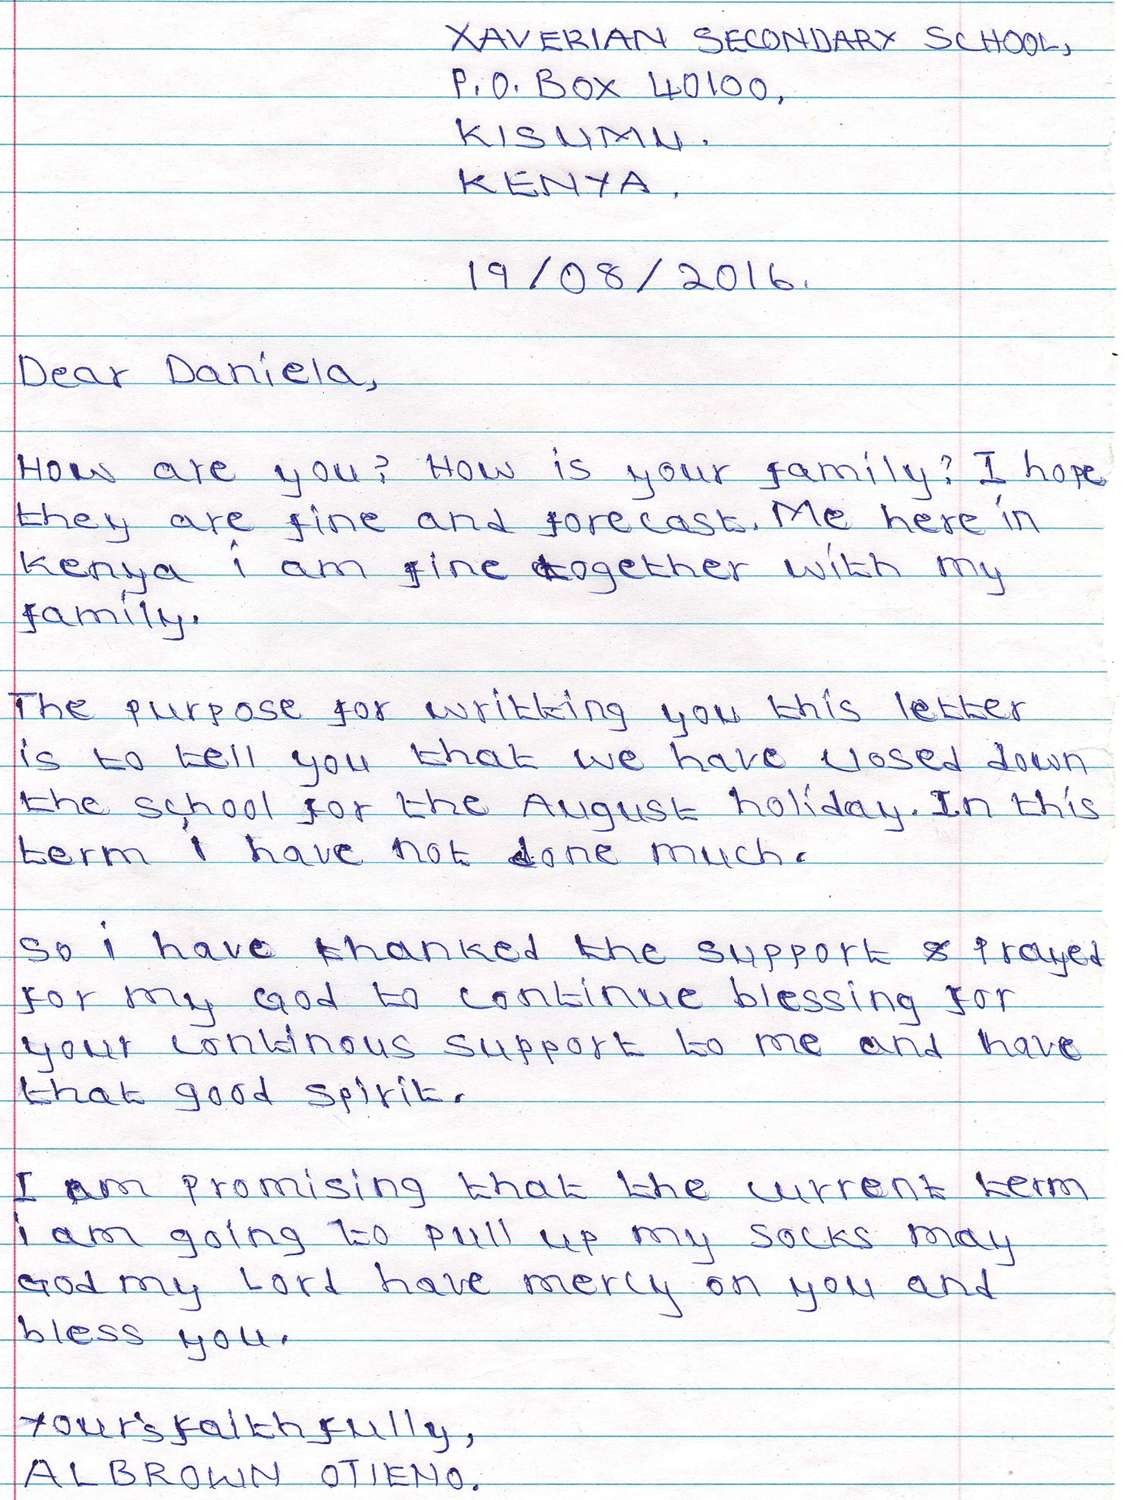 XAVERIAN SECONDARY SCHOOL,
P.O. BOX 40100,
KISUMU.
KENYA.
19/08/2016.
Dear Daniela,
How are you? How is your family? I hope
they are fine and forecast. Me here in
Kenya i am fine together with my
family.
The purpose for writting you this letter
is to tell you that we have closed down
the school for the August holiday. In this
term i have not done much.
So i have thanked the support & Prayed
for my God to continue blessing for
your continous support to me and have
that good spirit.
I am promising that the current term
i am going to pull up my socks may
God my Lord have mercy on you and
bless you.
Your's faithfully,
ALBROWN OTIENO.